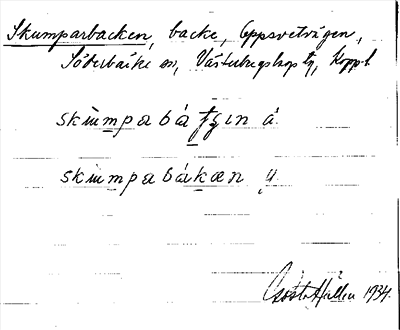 Skumparbacken, backe, Uppsvetvägen,
Söderbärke sn, Västerbergslags tg, Koppb
skùmpabátʃin á
skùmpabákæn ,,
Gösta Hallén 1934.